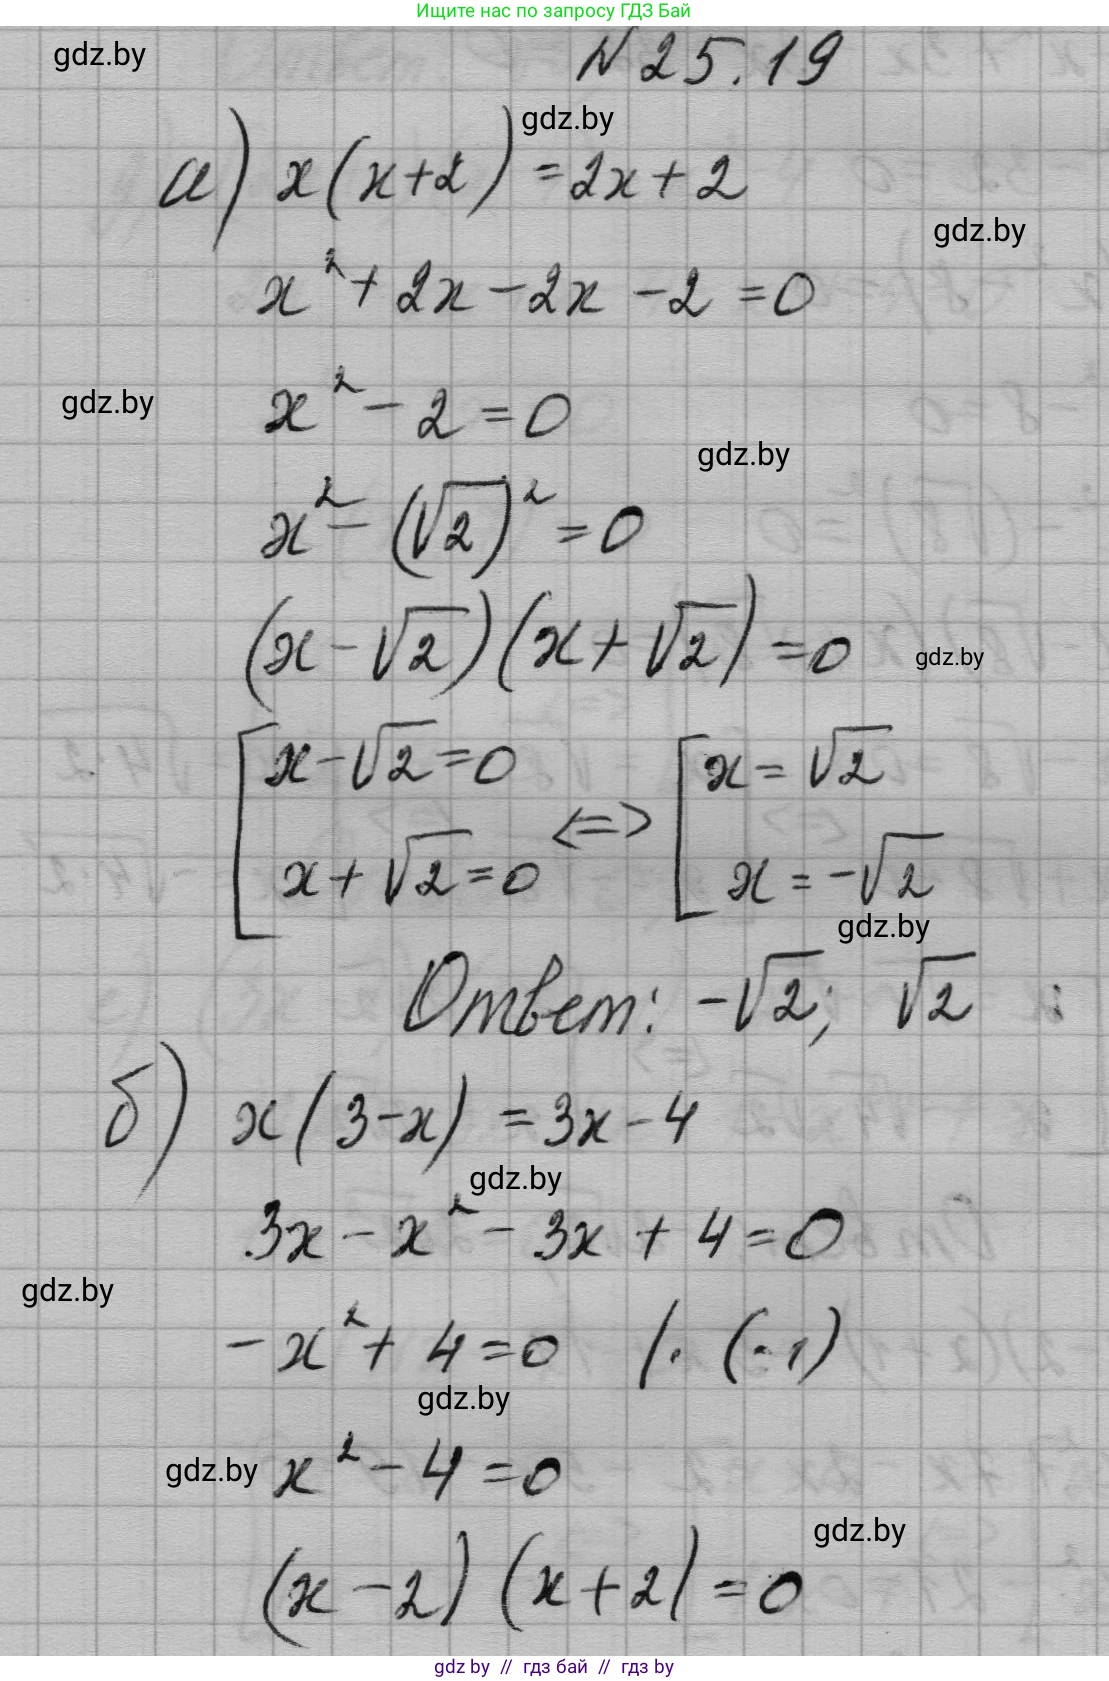 Ищите нас по запросу ГДЗ Бай
gdz.by
N 25.19
gdz.by
а) x(x+2) = 2x + 2
gdz.by
x² + 2x - 2x - 2 = 0
gdz.by
x² - 2 = 0
gdz.by
x² - (√2)² = 0
(x - √2)(x + √2) = 0
gdz.by
[x - √2 = 0 <=> [x = √2
x + √2 = 0 x = -√2
gdz.by
Ответ: -√2; √2
б) x(3-x) = 3x - 4
gdz.by
3x - x² - 3x + 4 = 0
gdz.by
-x² + 4 = 0 /· (-1)
gdz.by
gdz.by
x² - 4 = 0
gdz.by
(x - 2)(x + 2) = 0
gdz by // гдз бай // гдз by